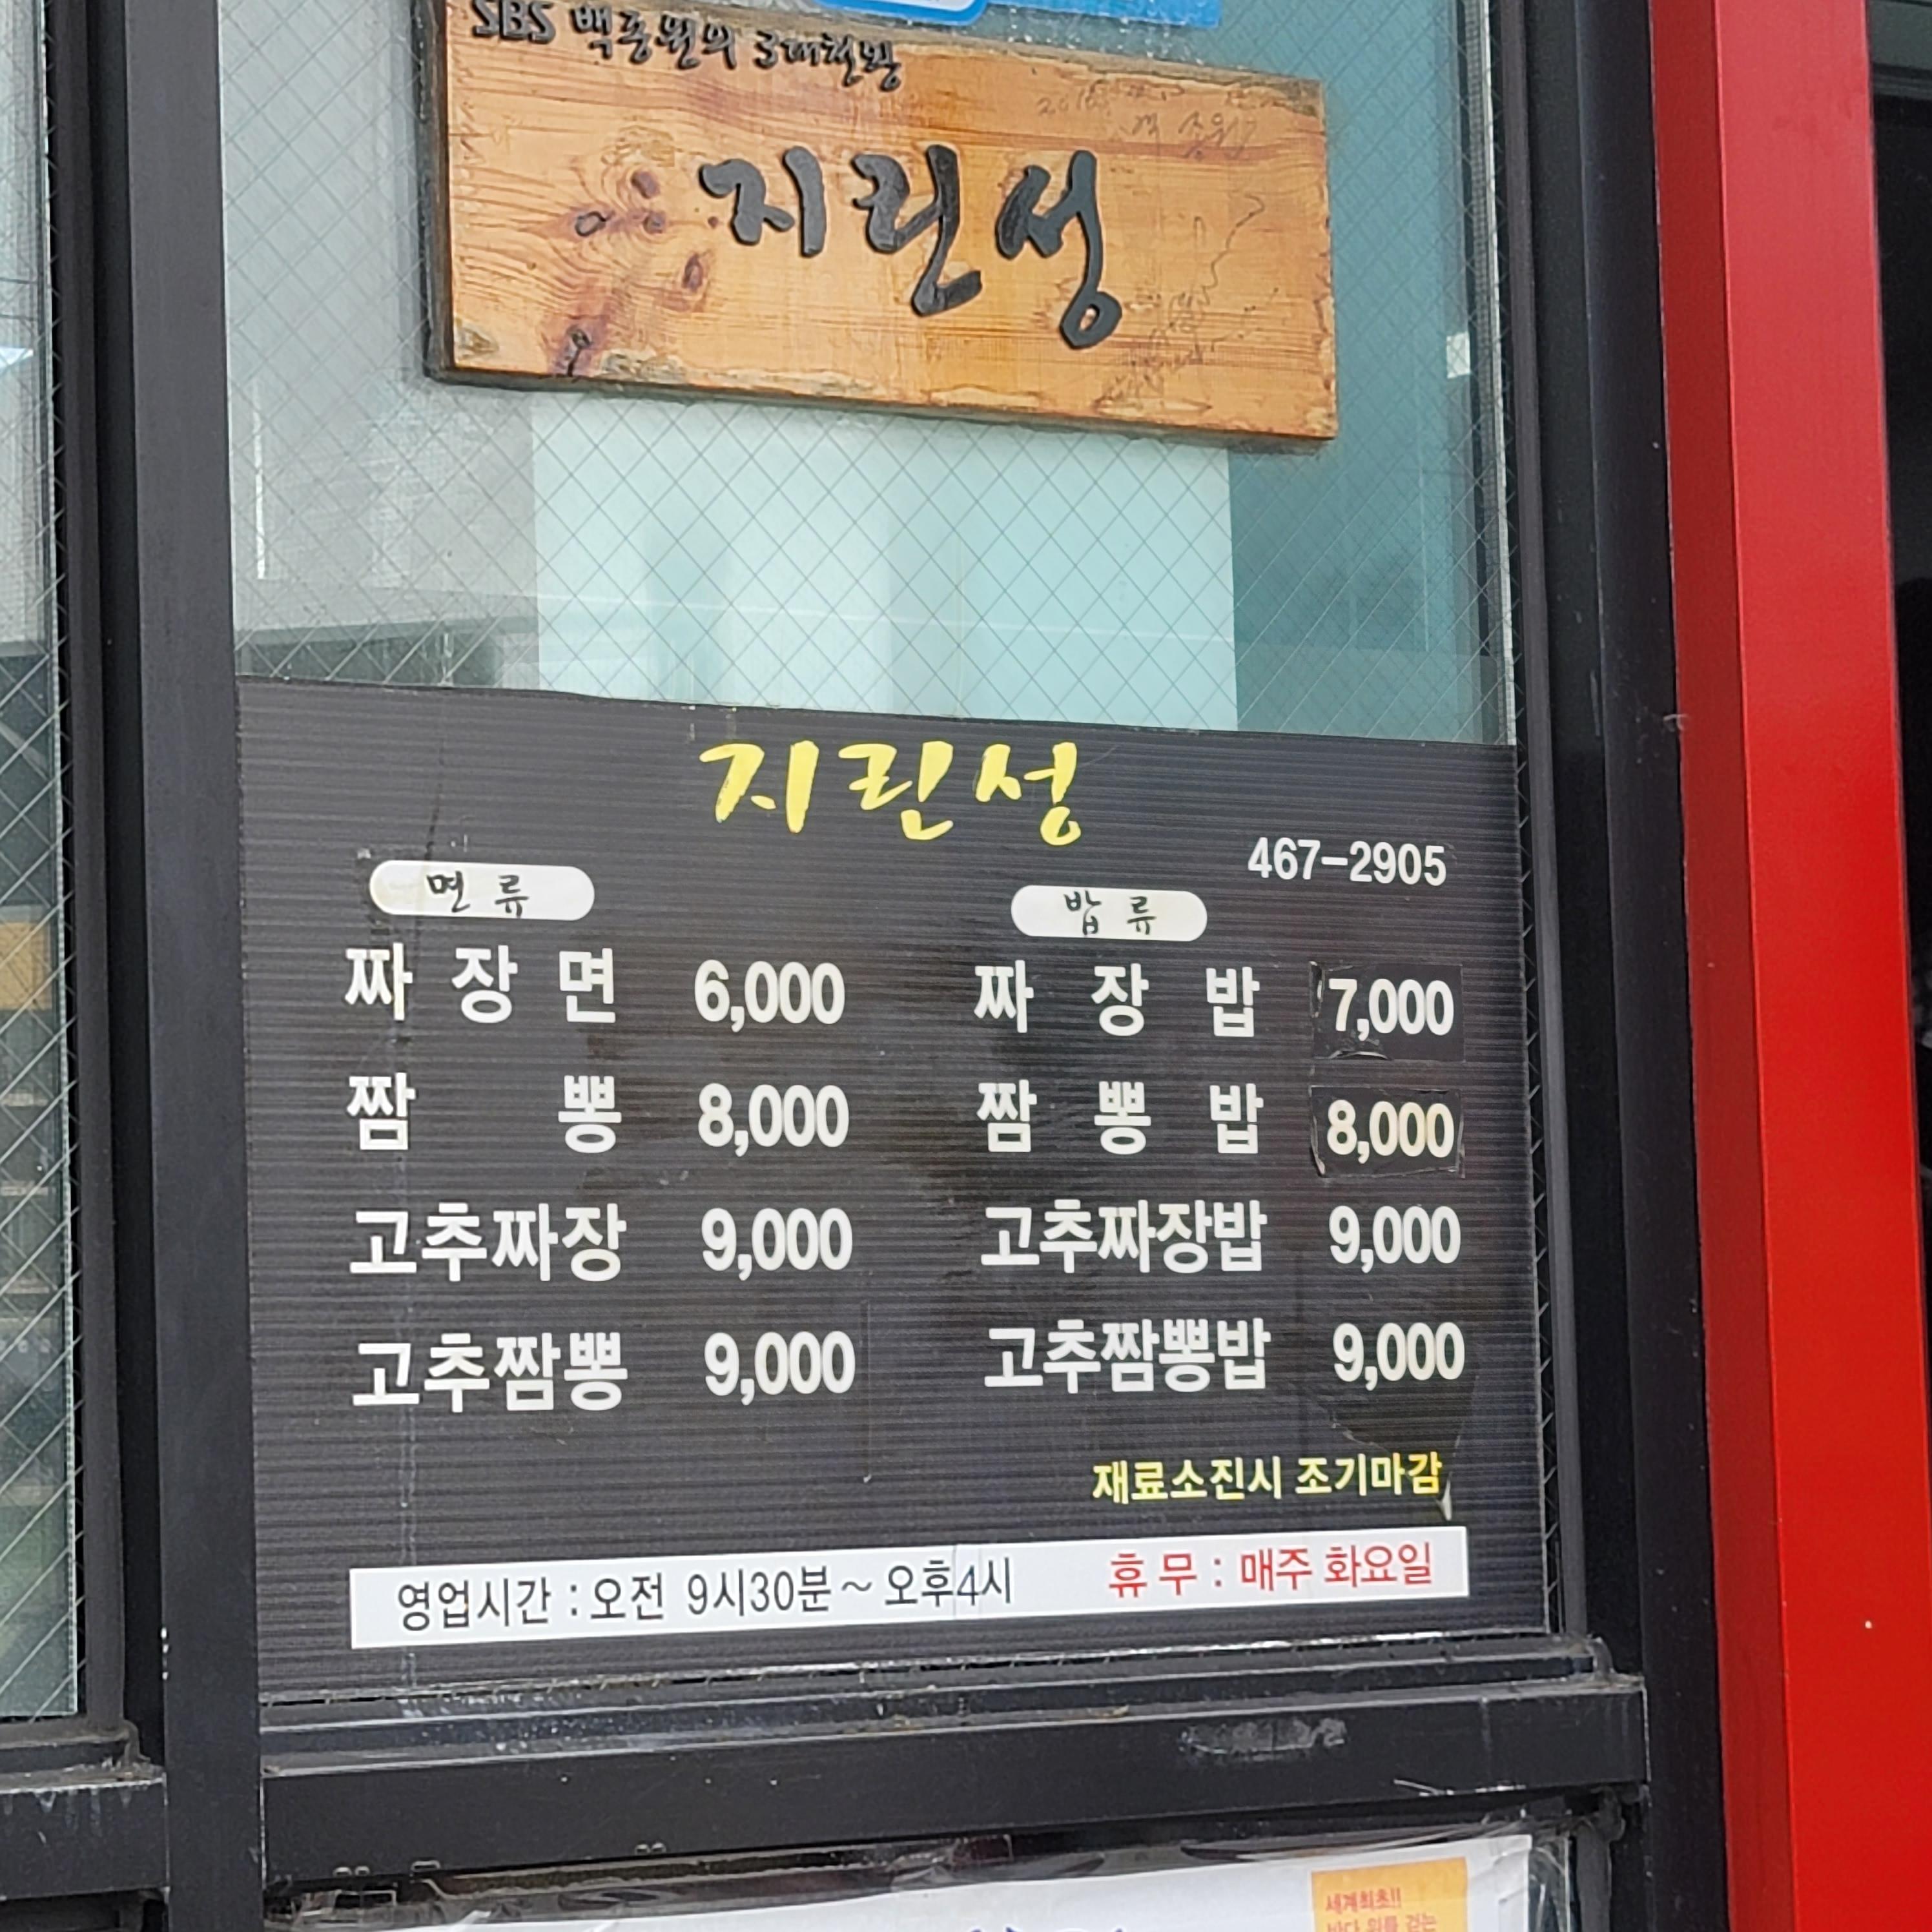 SBS 백종원의 3대천왕
지린성
지린성
467-2905
면류
짜장면 6,000
짬뽕 8,000
고추짜장 9,000
고추짬뽕 9,000
밥류
짜장밥 7,000
짬뽕밥 8,000
고추짜장밥 9,000
고추짬뽕밥 9,000
재료소진시 조기마감
영업시간 : 오전 9시30분 ~ 오후4시 휴무 : 매주 화요일
세계최초!!
바다 위를 걷는